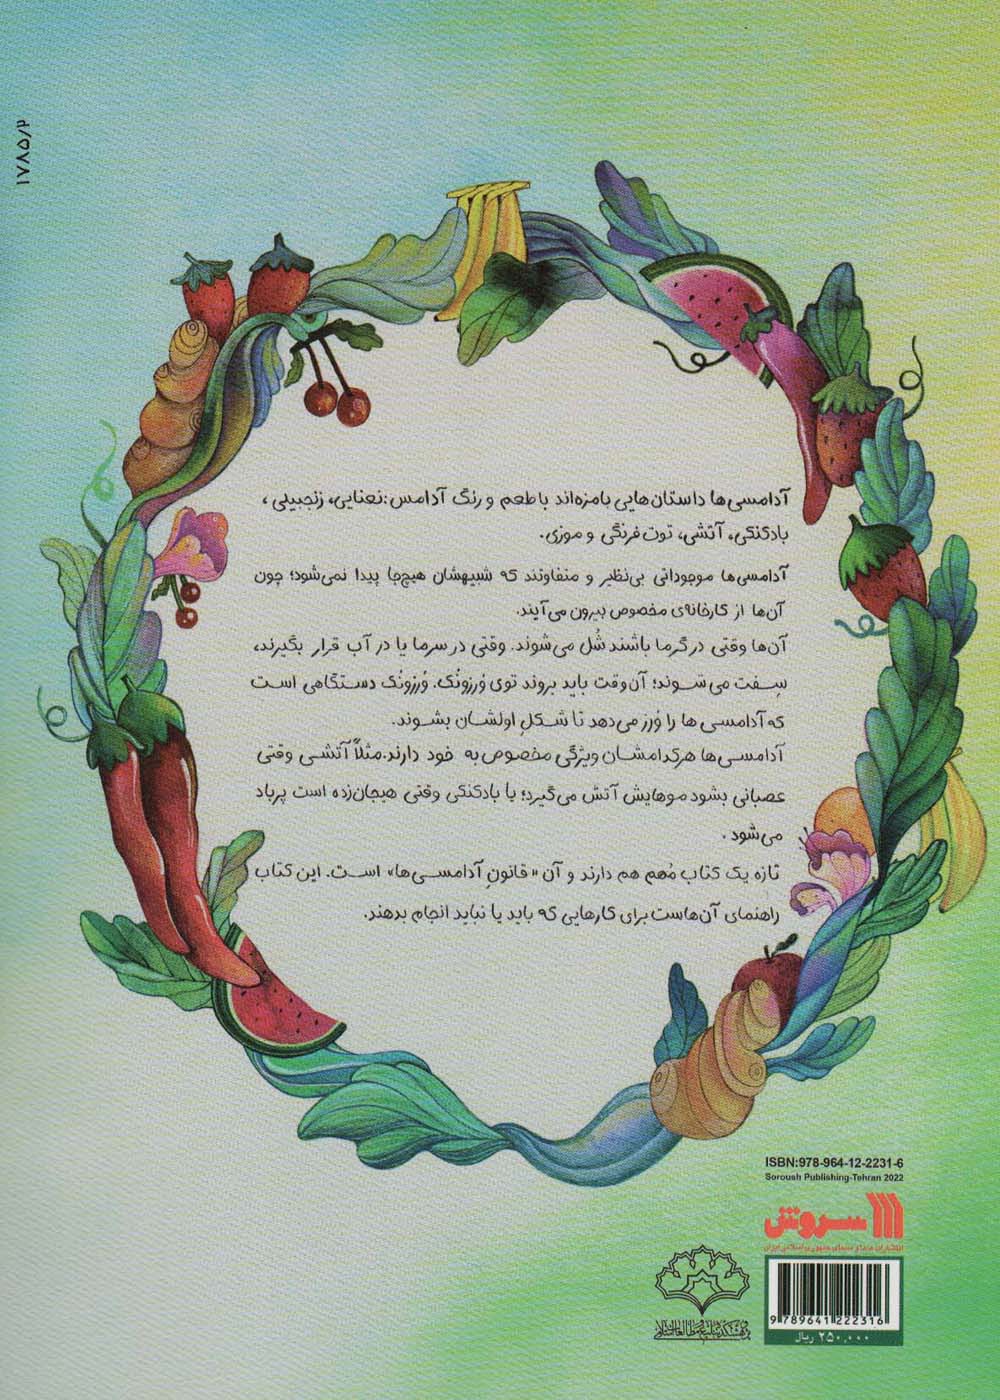 ۱۷۸۵/۲
آدامسی‌ها داستان‌هایی بامزه‌اند با طعم و رنگ آدامس: نعنایی، زنجبیلی،
بادکنکی، آتشی، توت‌فرنگی و موزی.
آدامسی‌ها موجوداتی بی‌نظیر و متفاوتند که شبیهشان هیچ‌جا پیدا نمی‌شود؛ چون
آن‌ها از کارخانه‌ی مخصوص بیرون می‌آیند.
آن‌ها وقتی در گرما باشند شُل می‌شوند. وقتی در سرما یا در آب قرار بگیرند،
سِفت می‌شوند؛ آن‌وقت باید بروند توی وَرزونَک. وَرزونَک دستگاهی است
که آدامسی‌ها را وَرز می‌دهد تا شکلِ اولشان بشوند.
آدامسی‌ها هرکدامشان ویژگی مخصوص به خود دارند. مثلاً آتشی وقتی
عصبانی بشود موهایش آتش می‌گیرد؛ یا بادکنکی وقتی هیجان‌زده است پرباد
می‌شود.
تازه یک کتاب مُهم هم دارند و آن «قانونِ آدامسی‌ها» است. این کتاب
راهنمای آن‌هاست برای کارهایی که باید یا نباید انجام بدهند.
ISBN:978-964-12-2231-6
Soroush Publishing-Tehran 2022
سروش
انتشارات صدا و سیمای جمهوری اسلامی ایران
9 789641 222316
۲۵۰,۰۰۰ ریال